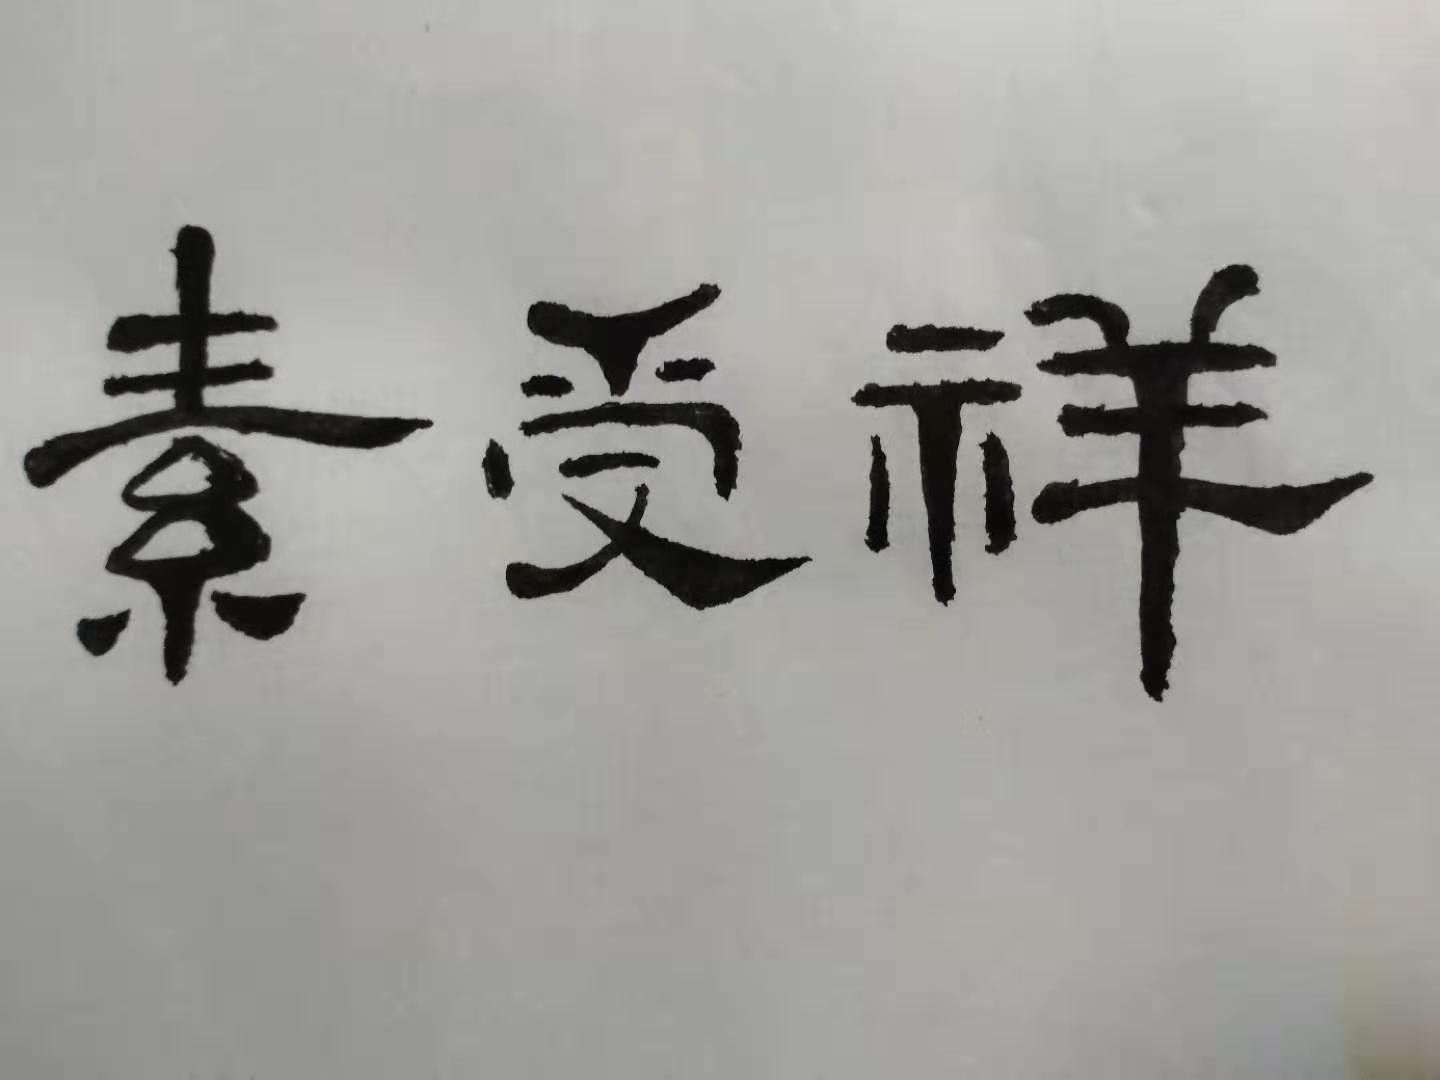 素受祥